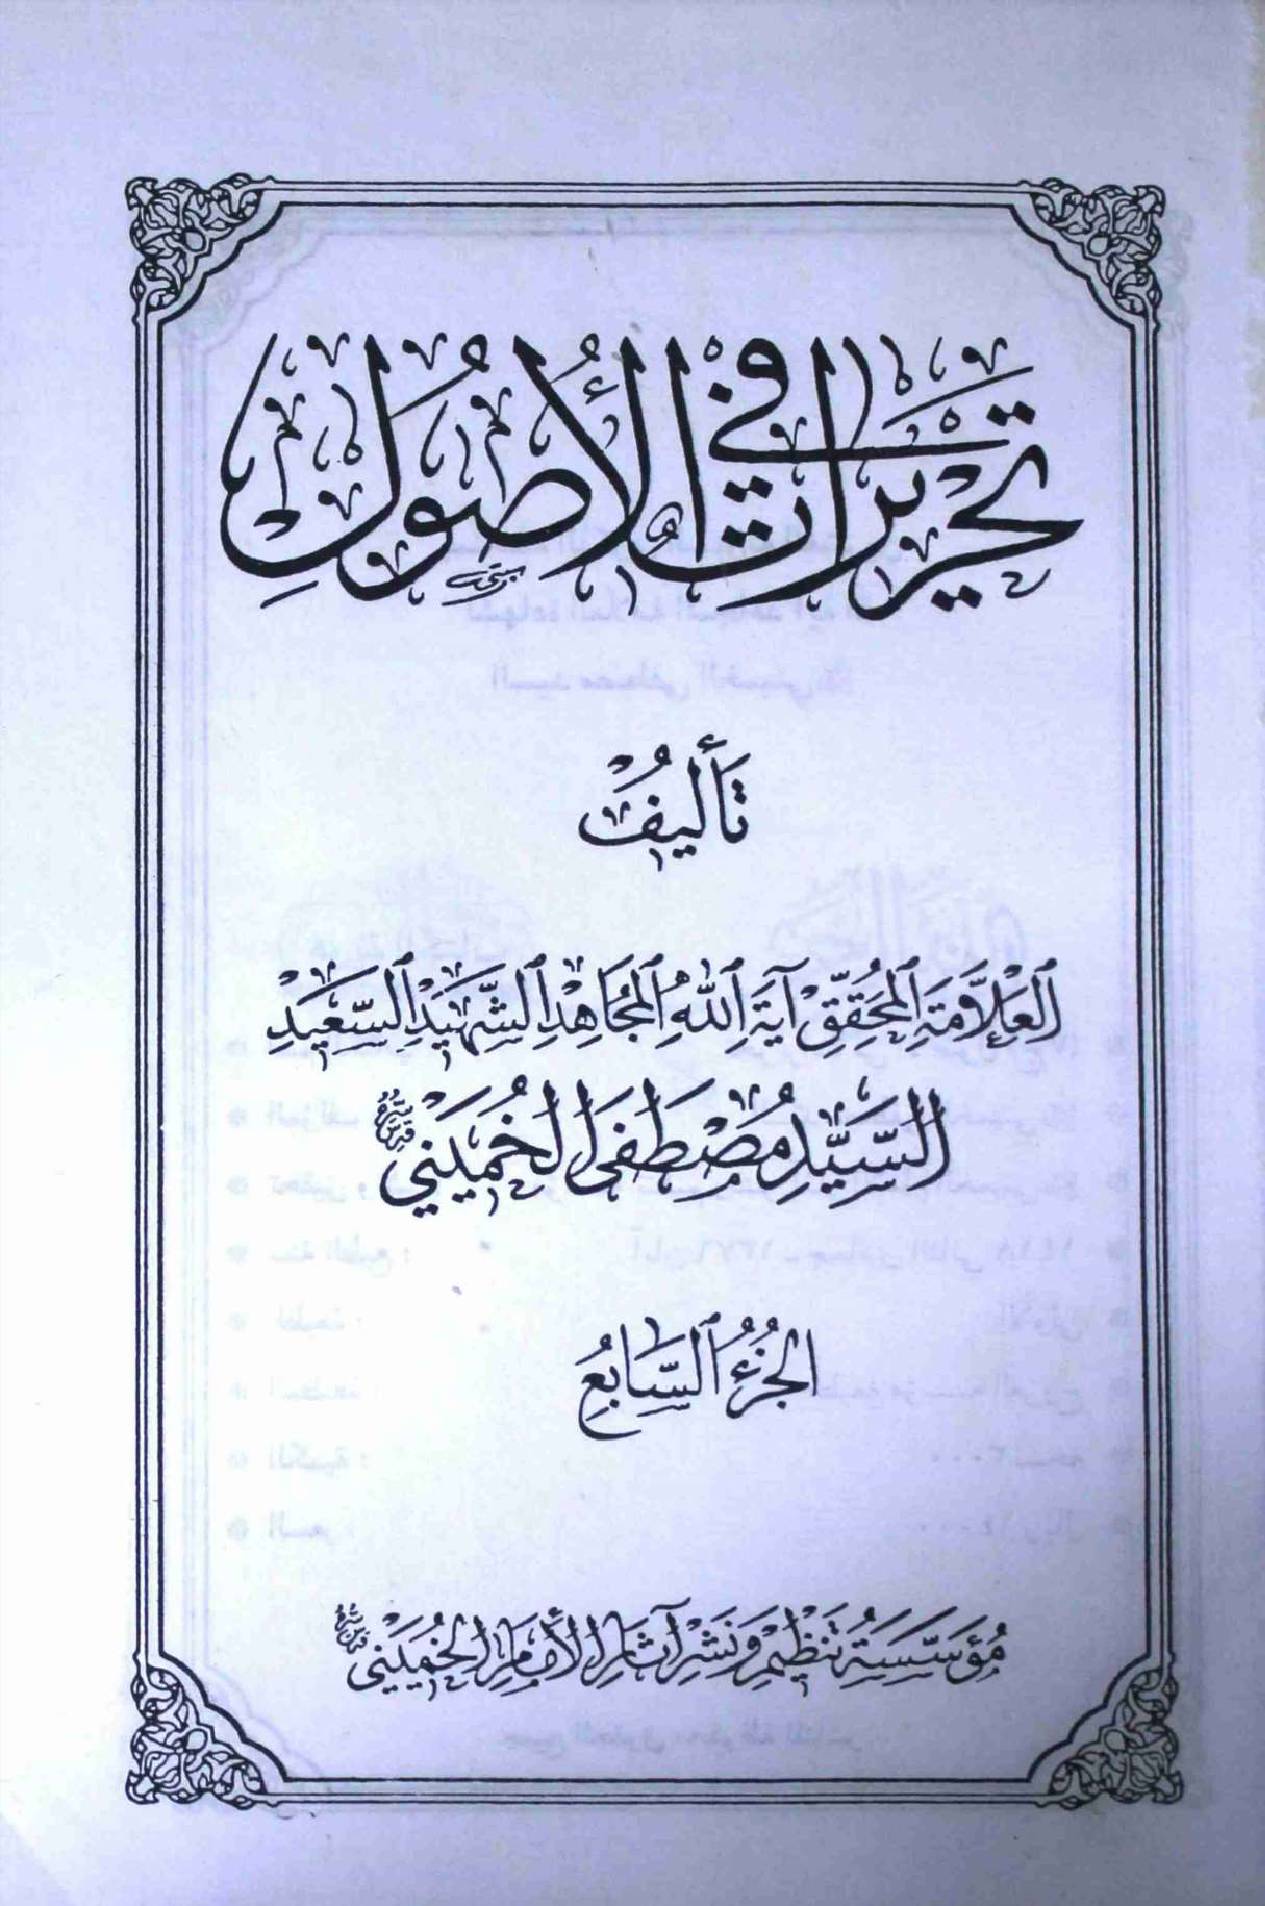 تحريرات في الأصول
تأليف
العلامة المحقق آية الله المجاهد الشهيد السعيد
السيد مصطفى الخميني قدس سره
الجزء السابع
مؤسسة تنظيم ونشر آثار الإمام الخميني قدس سره